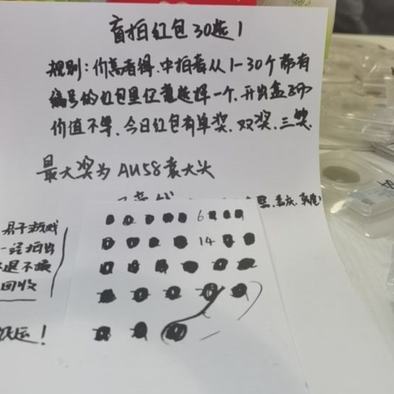 盲拍红包30选1
规则：价高者得，中拍者从1-30个带有
编号的红包里任意选择一个，开出盒子
价值不等，今日红包有单奖，双奖，三奖
最大奖为AU58袁大头
君子游戏
一经拍出
不退不换
回收
6
14
好运！